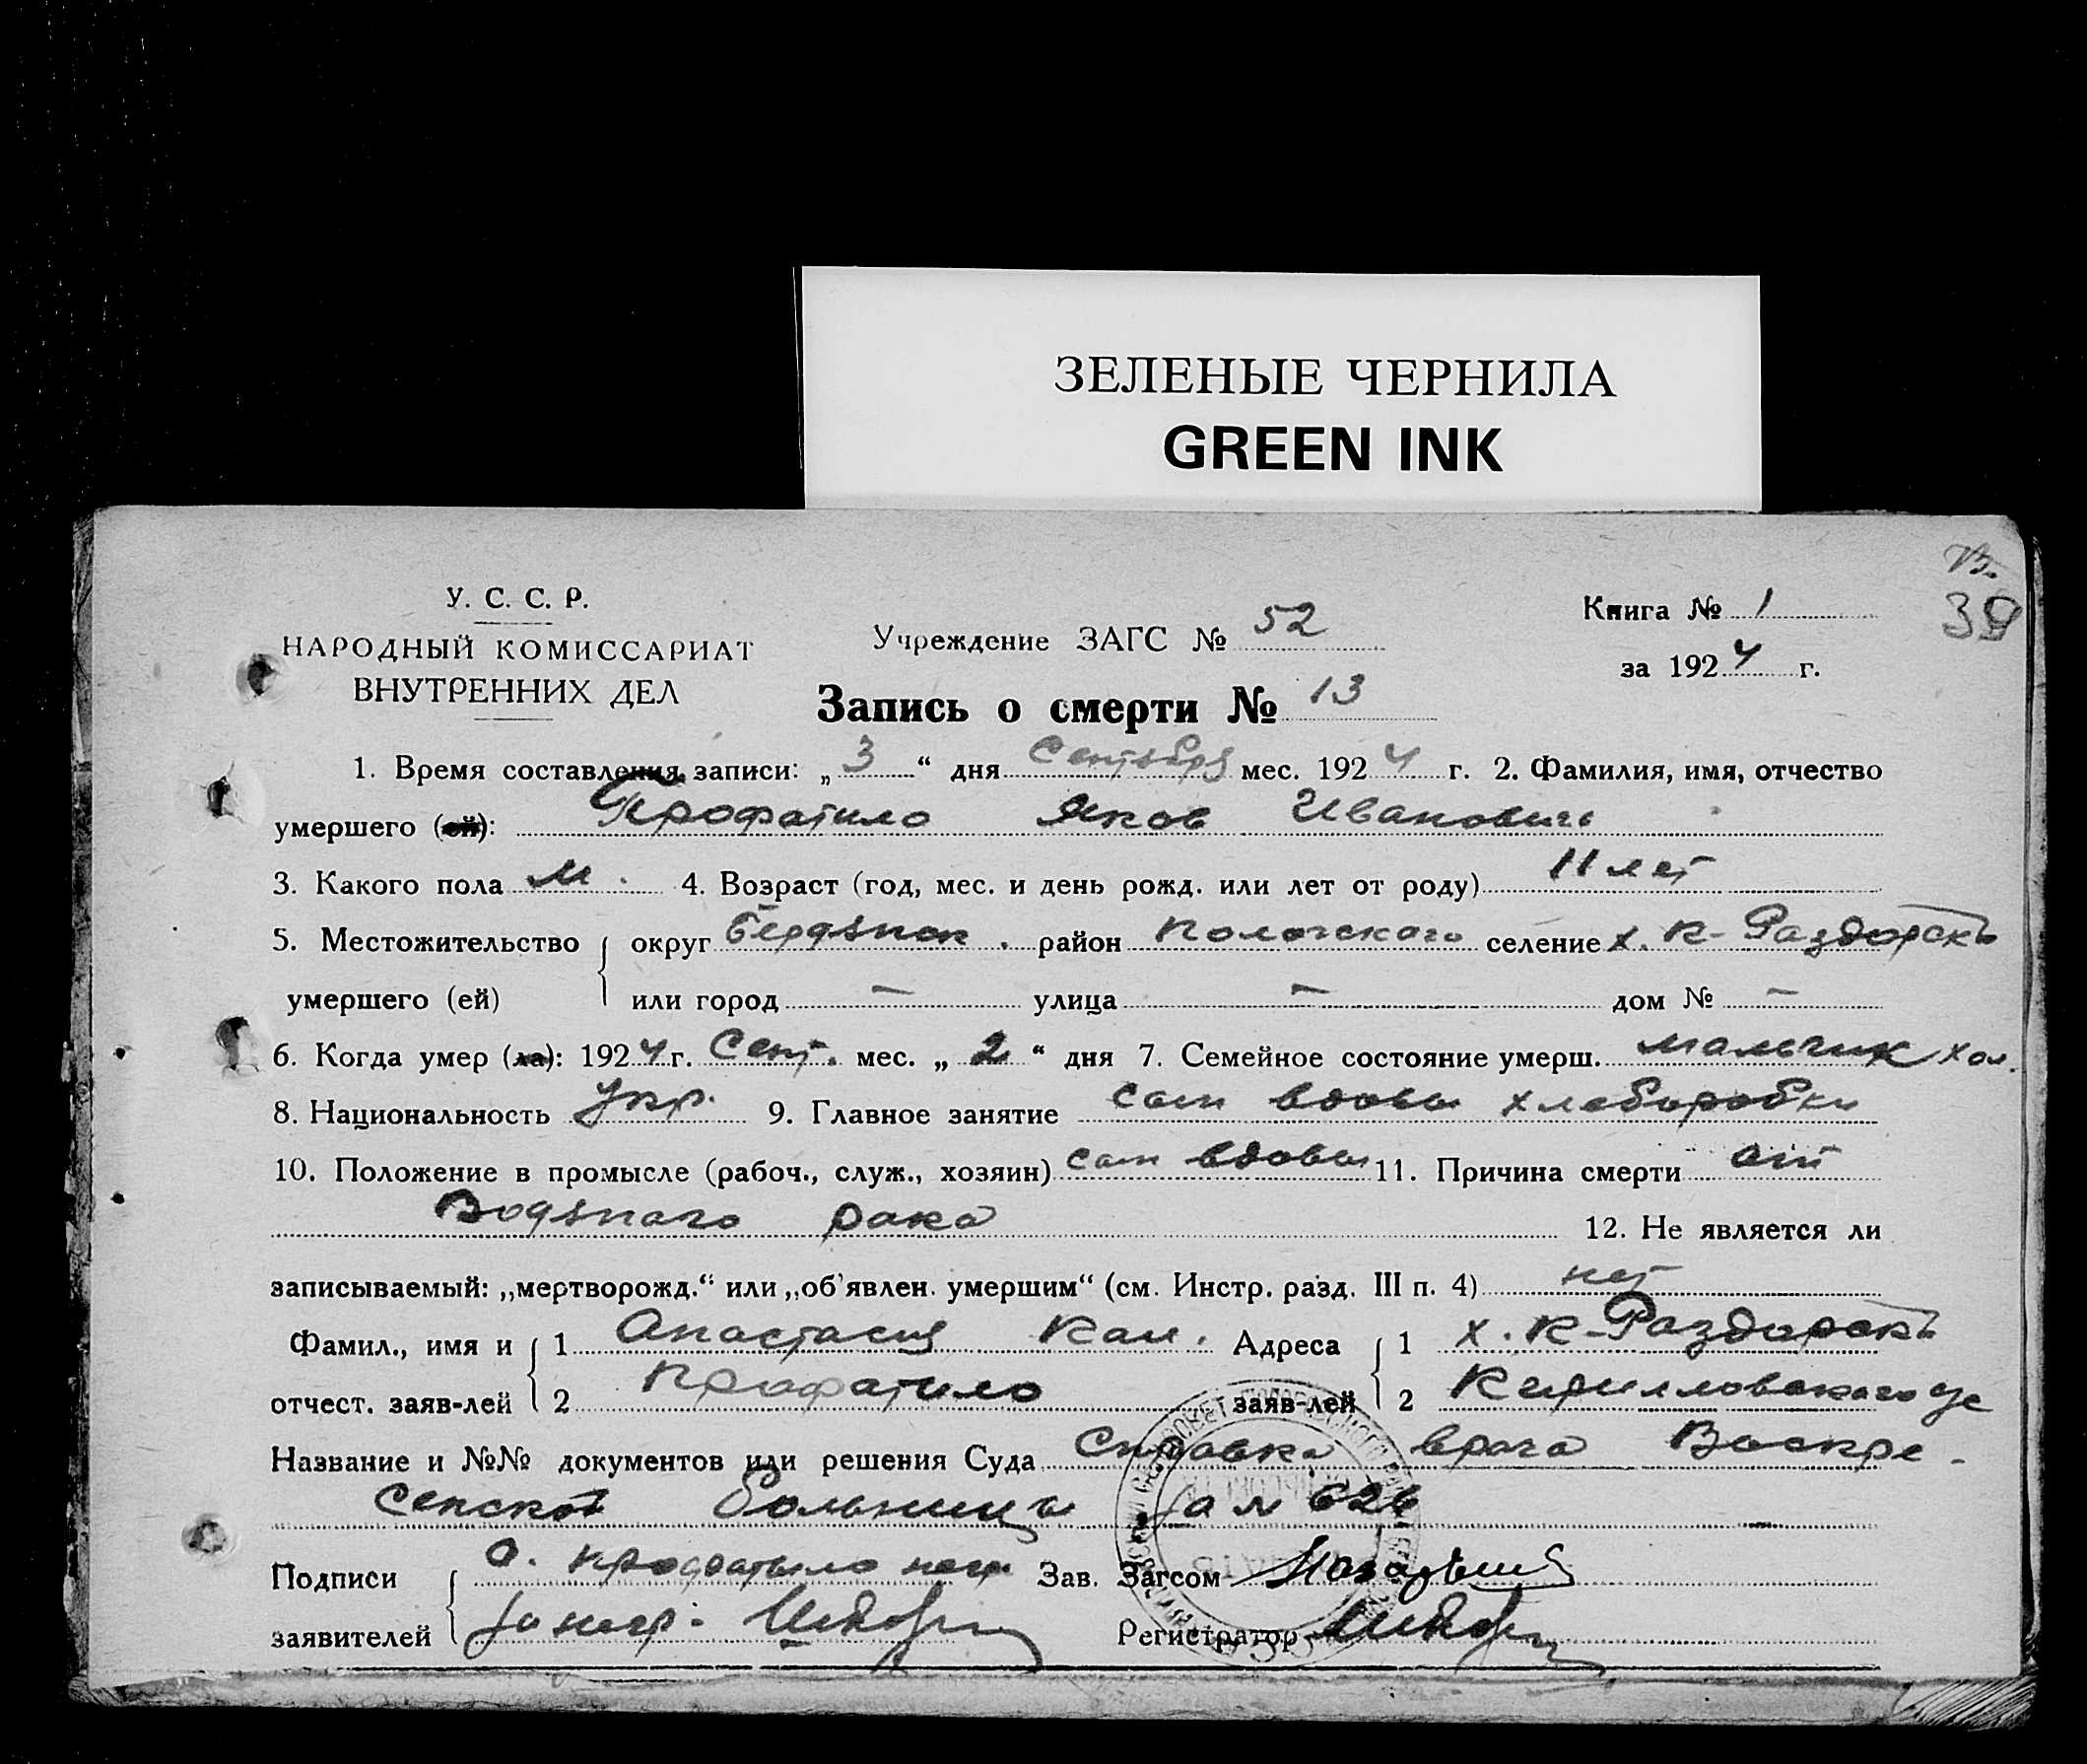 ЗЕЛЕНЫЕ ЧЕРНИЛА
GREEN INK
39
У. С. С. Р.
НАРОДНЫЙ КОМИССАРИАТ
ВНУТРЕННИХ ДЕЛ
Учреждение ЗАГС № 52
Книга № 1
за 1924 г.
Запись о смерти № 13
1. Время составления записи: „3“ дня Сентября мес. 1924 г. 2. Фамилия, имя, отчество
умершего (ей): Профатило Яков Иванович
3. Какого пола м. 4. Возраст (год, мес. и день рожд. или лет от роду) 11 лет
5. Местожительство округ Бердянск. район Пологского селение х. К-Раздорскъ
умершего (ей) или город — улица — дом № —
6. Когда умер (ла): 1924 г. Сент. мес. „2“ дня 7. Семейное состояние умерш. мальчик хол.
8. Национальность Укр. 9. Главное занятие сын вдовы хлеборобки
10. Положение в промысле (рабоч., служ., хозяин) сын вдовы 11. Причина смерти от
Водяного рака 12. Не является ли
записываемый: „мертворожд.“ или „об'явлен. умершим“ (см. Инстр. разд. III п. 4) нет
Фамил., имя и 1 Анастасия Адреса 1 х. К-Раздорскъ
отчест. заяв-лей 2 Профатило заяв-лей 2 Кирилловского
Название и №№ документов или решения Суда Справка врача Воскре-
сенской больницы за № 626
Подписи Зав. Загсом
заявителей за негр. Регистратор